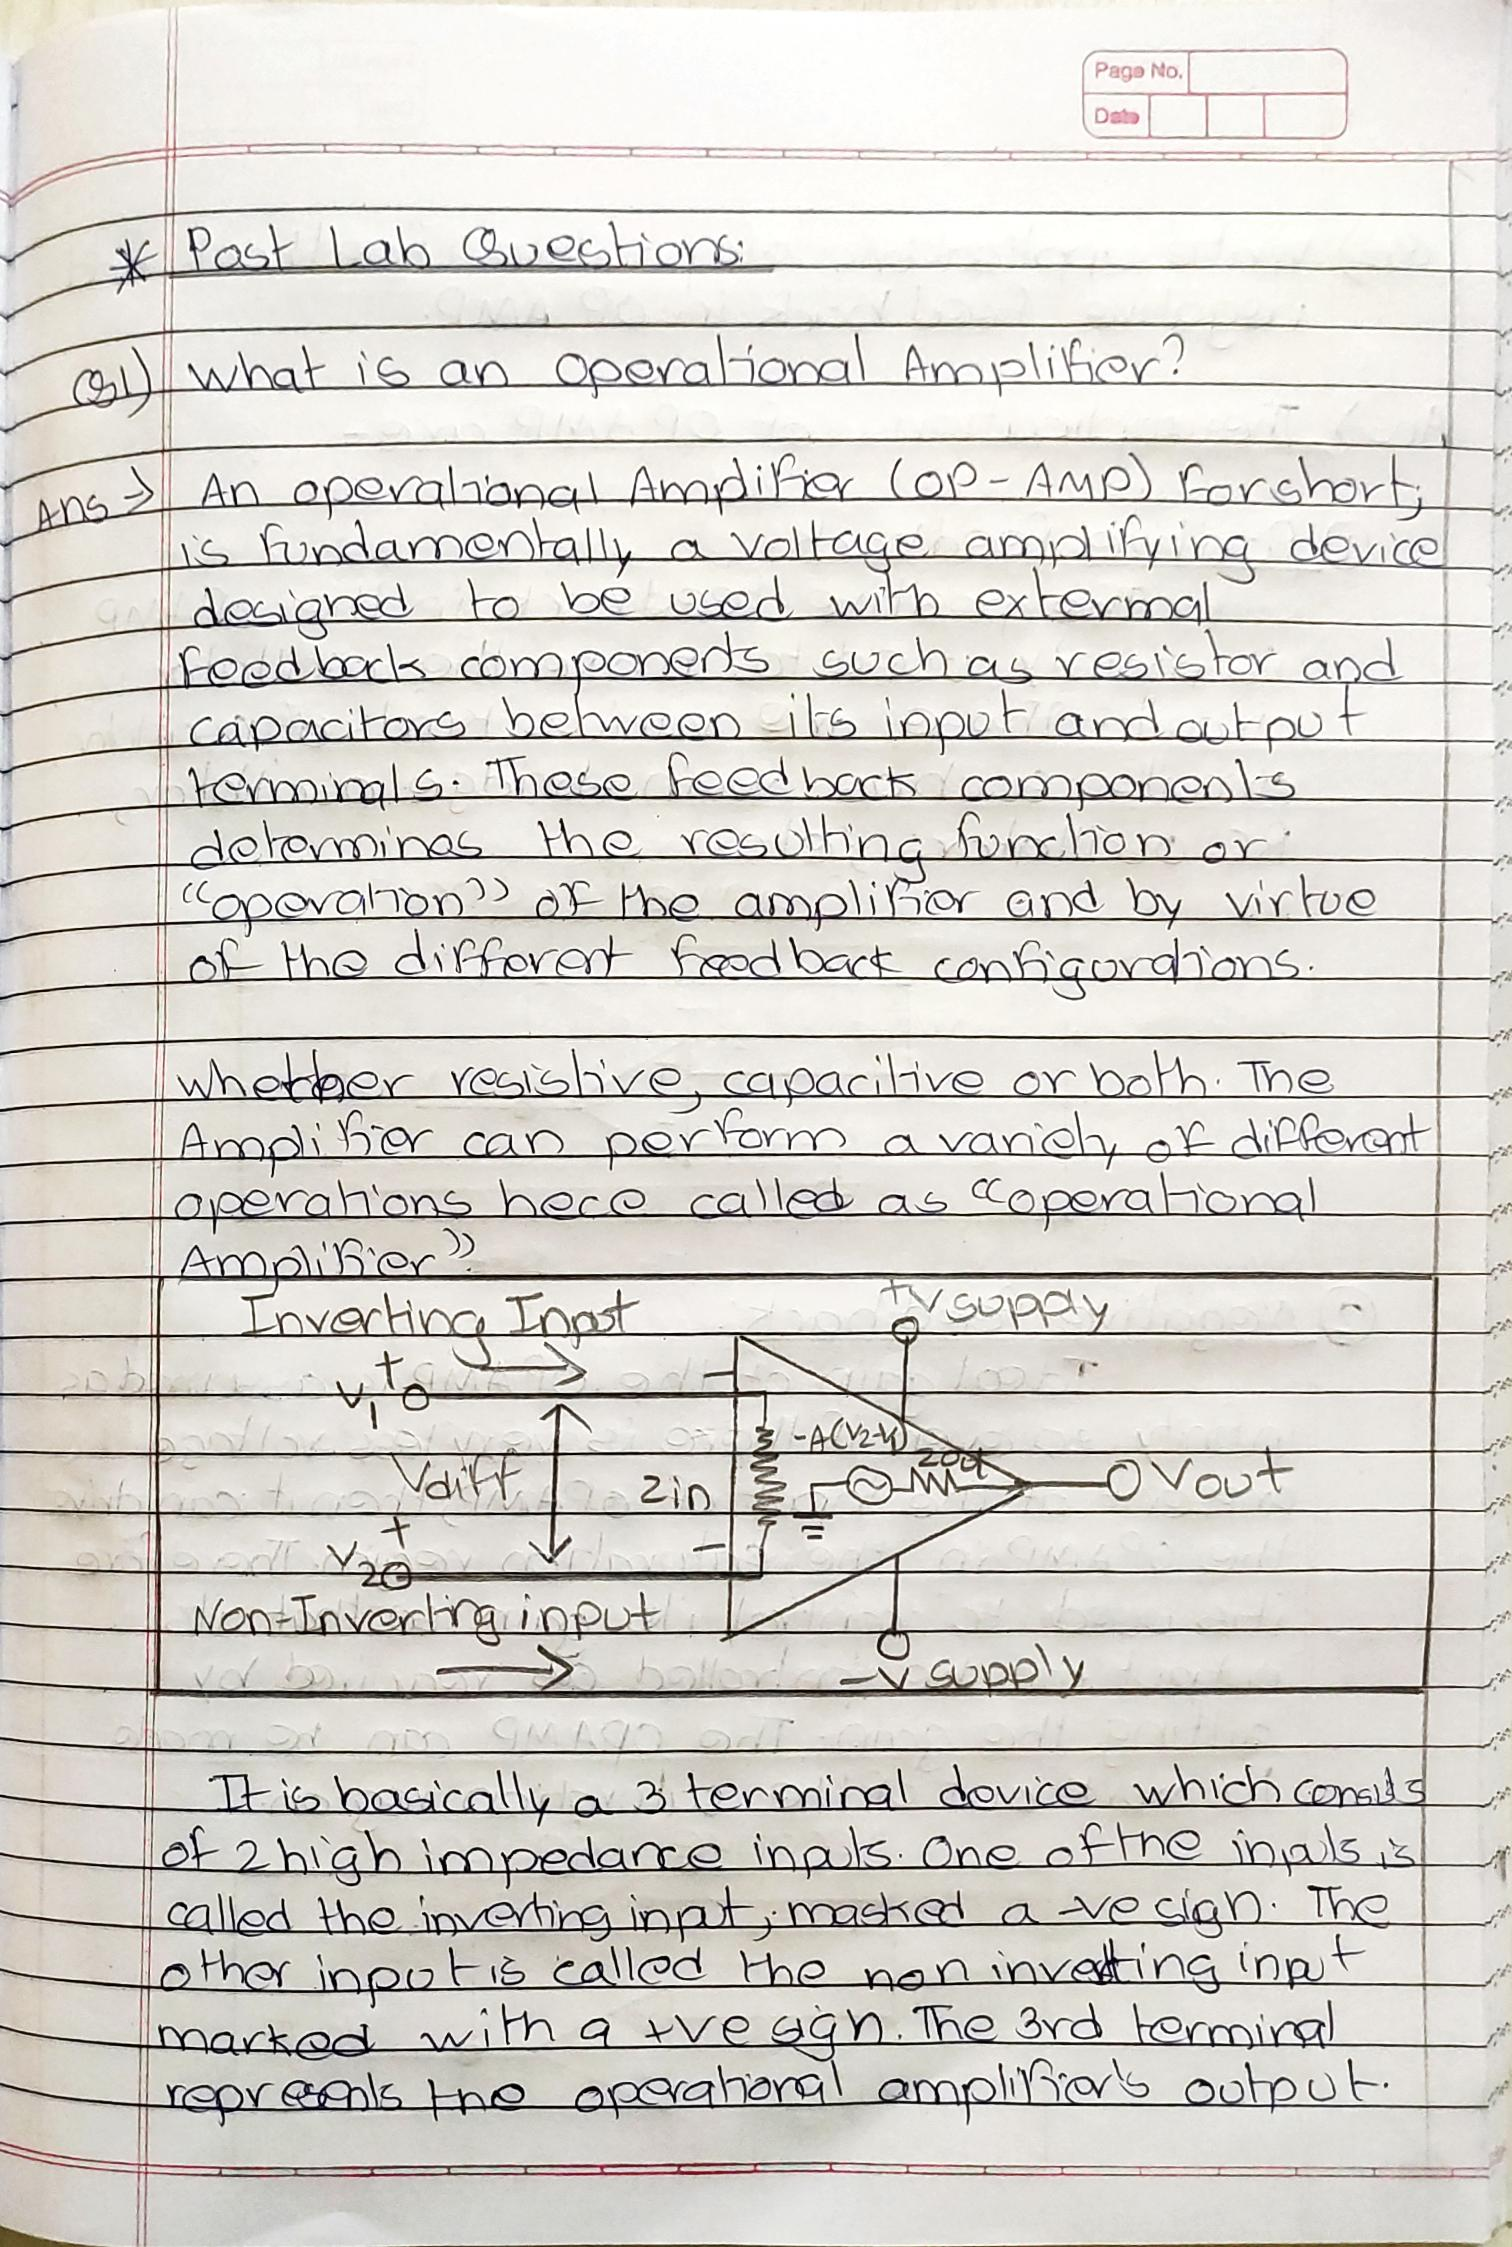 Page No.
Date
* Post Lab Questions:
Q1) What is an operational Amplifier?
Ans → An operational Amplifier (OP-AMP) for short,
is fundamentally a voltage amplifying device
designed to be used with extermal
feedback components such as resistor and
capacitors between its input and output
terminals. These feedback components
determines the resulting function or
"operation" of the amplifier and by virtue
of the different feedback configurations.
whether resistive, capacitive or both. The
Amplifier can perform a variety of different
operations hece called as "operational
Amplifier"
Inverting Input
+V supply
V1 +
-
-A(V2-V1)
Zout
Vdiff
Zin
Vout
+
V2
-
Non-Inverting input
-V supply
It is basically a 3 terminal device which consists
of 2 high impedance inputs. One of the inputs is
called the inverting input, masked a -ve sign. The
other input is called the non inverting input
marked with a +ve sign. The 3rd terminal
represents the operational amplifier's output.